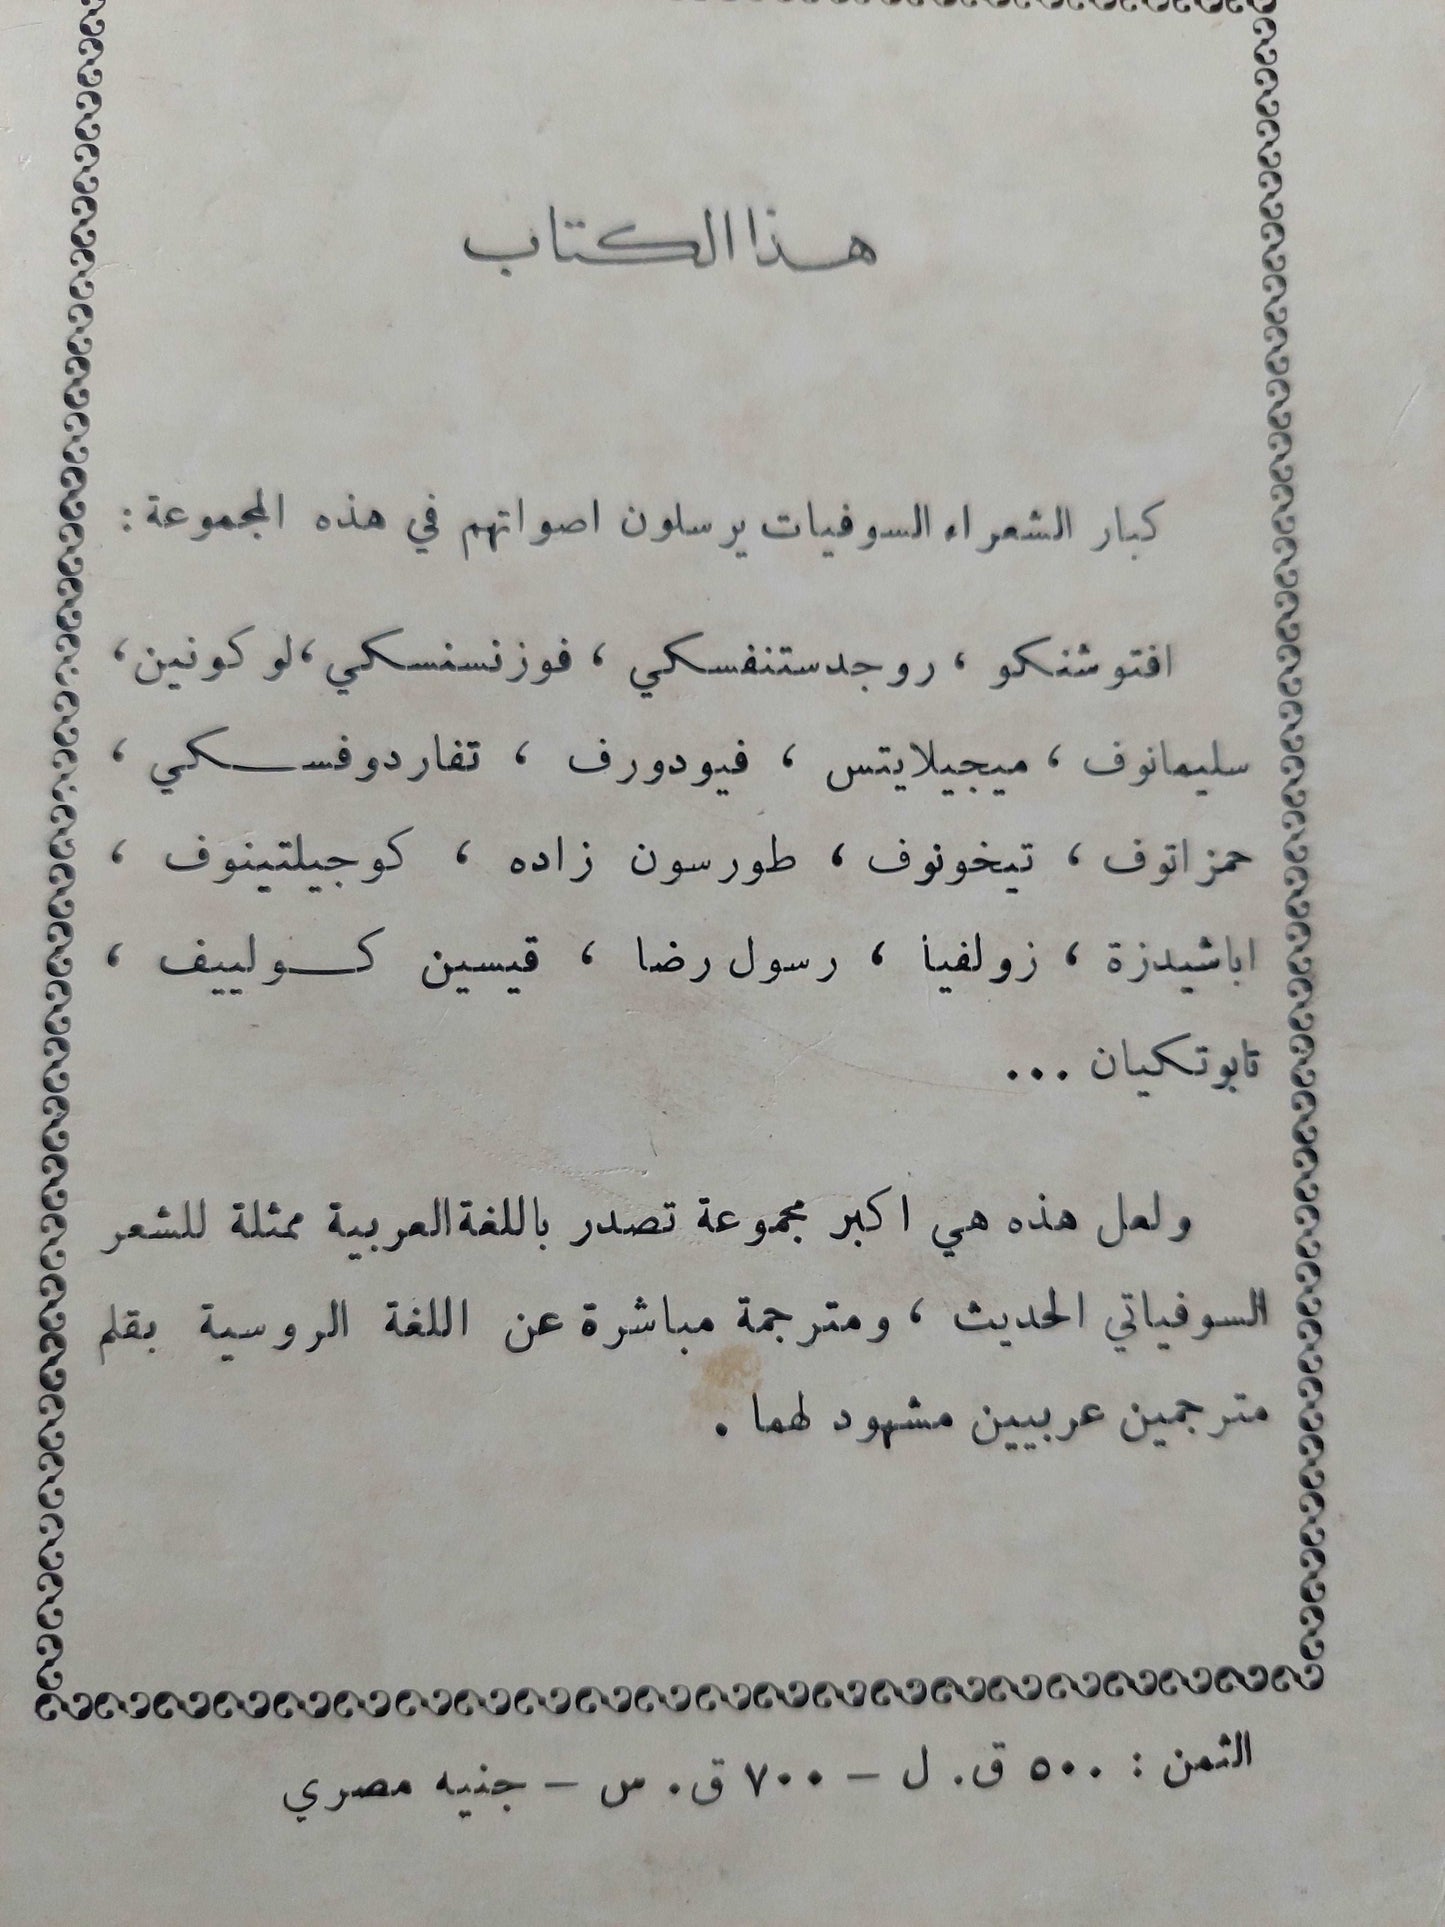 هذا الكتاب
كبار الشعراء السوفيات يرسلون اصواتهم في هذه المجموعة :
افتوشنكو ، روجدستنفسكي ، فوزنسنسكي ، لوكونين ،
سليمانوف ، ميجيلايتس ، فيودورف ، تفاردوفسكي ،
حمزاتوف ، تيخونوف ، طورسون زاده ، كوجيلتينوف ،
اباشيدزة ، زولفيا ، رسول رضا ، قيسين كولييف ،
تابوتكيان ...
ولعل هذه هي اكبر مجموعة تصدر باللغة العربية ممثلة للشعر
السوفياتي الحديث ، ومترجمة مباشرة عن اللغة الروسية بقلم
مترجمين عربيين مشهود لهما .
الثمن : ٥٠٠ ق. ل - ٧٠٠ ق. س - جنيه مصري